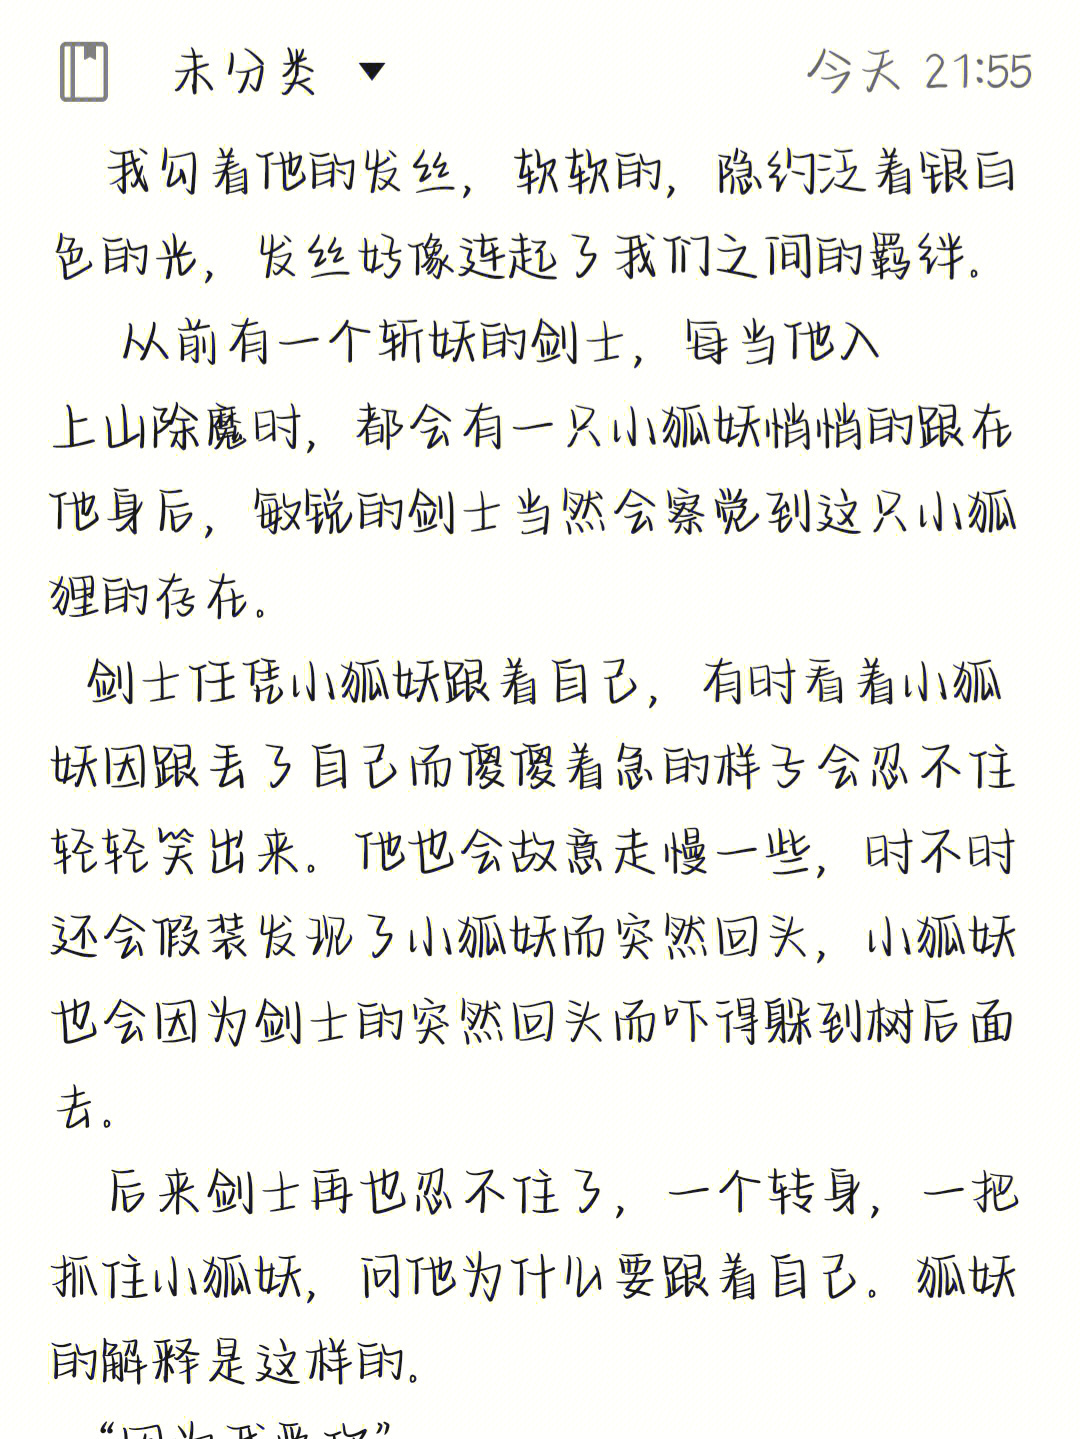 未分类 ▼ 今天 21:55
我勾着他的发丝，软软的，隐约泛着银白
色的光，发丝好像连起了我们之间的羁绊。
从前有一个斩妖的剑士，每当他入
上山除魔时，都会有一只小狐妖悄悄的跟在
他身后，敏锐的剑士当然会察觉到这只小狐
狸的存在。
剑士任凭小狐妖跟着自己，有时看着小狐
妖因跟丢了自己而傻傻着急的样子会忍不住
轻轻笑出来。他也会故意走慢一些，时不时
还会假装发现了小狐妖而突然回头，小狐妖
也会因为剑士的突然回头而吓得躲到树后面
去。
后来剑士再也忍不住了，一个转身，一把
抓住小狐妖，问他为什么要跟着自己。狐妖
的解释是这样的。
“因为我要